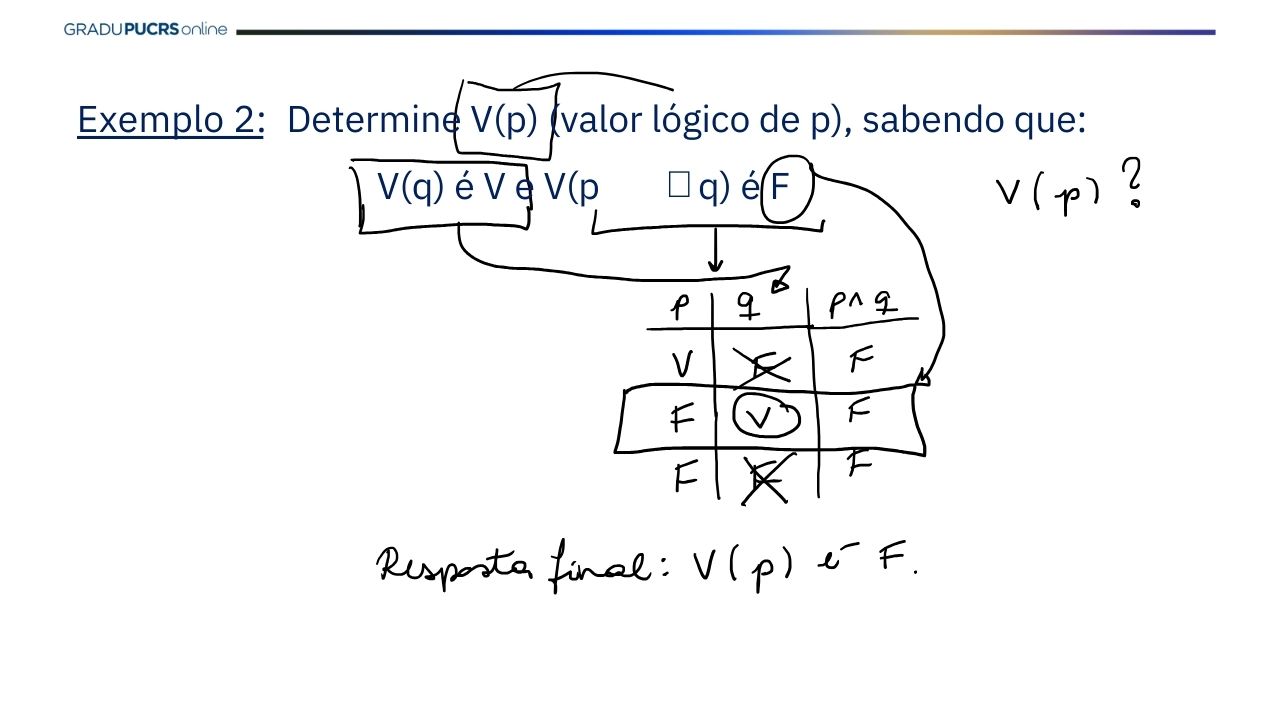 GRADUPUCRS online
Exemplo 2: Determine V(p) (valor lógico de p), sabendo que:
V(q) é V e V(p □ q) é F
V(p)?
p q p ∧ q
V F F
F V F
F F F
Resposta final: V(p) é F.